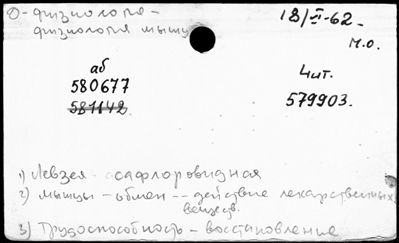 Ф-физиология-
18/II-62-
физиология мышц
м.о.
аб
580677
581142
Чит.
579903.
1) Левзея сафлоровидная
2) мышцы - обмен -- действие лекарственных
веществ.
3) Трудоспособность - восстановление